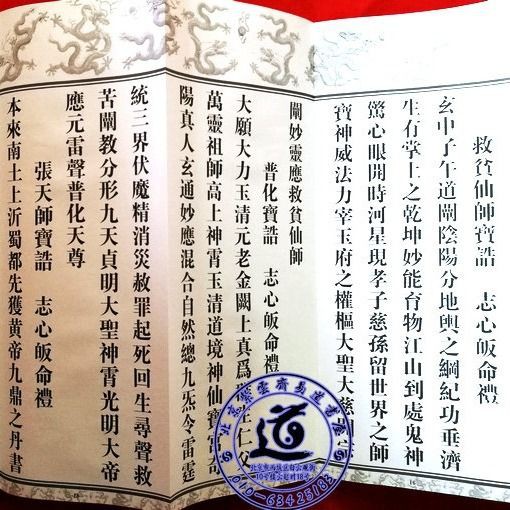 救貧仙師寶誥　志心皈命禮
玄中子午道闡陰陽分地輿之綱紀功垂濟
生掌上之乾坤妙能育物江山到處鬼神
驚心眼開時河星現孝子慈孫留世界之師
寶神威法力宰玉府之權樞大聖大慈
闡妙靈應救貧仙師
普化寶誥　志心皈命禮
大願大力玉清元老金闕上真為生仁父
萬靈祖師高上神霄玉清道境神仙寶
陽真人玄通妙應混合自然總九炁令雷霆
統三界伏魔精消災赦罪起死回生尋聲救
苦闡教分形九天貞明大聖神霄光明大帝
應元雷聲普化天尊
張天師寶誥　志心皈命禮
本來南土上沂蜀都先獲黃帝九鼎之丹書
北京紫雲齋易道書店
道
010-63425183